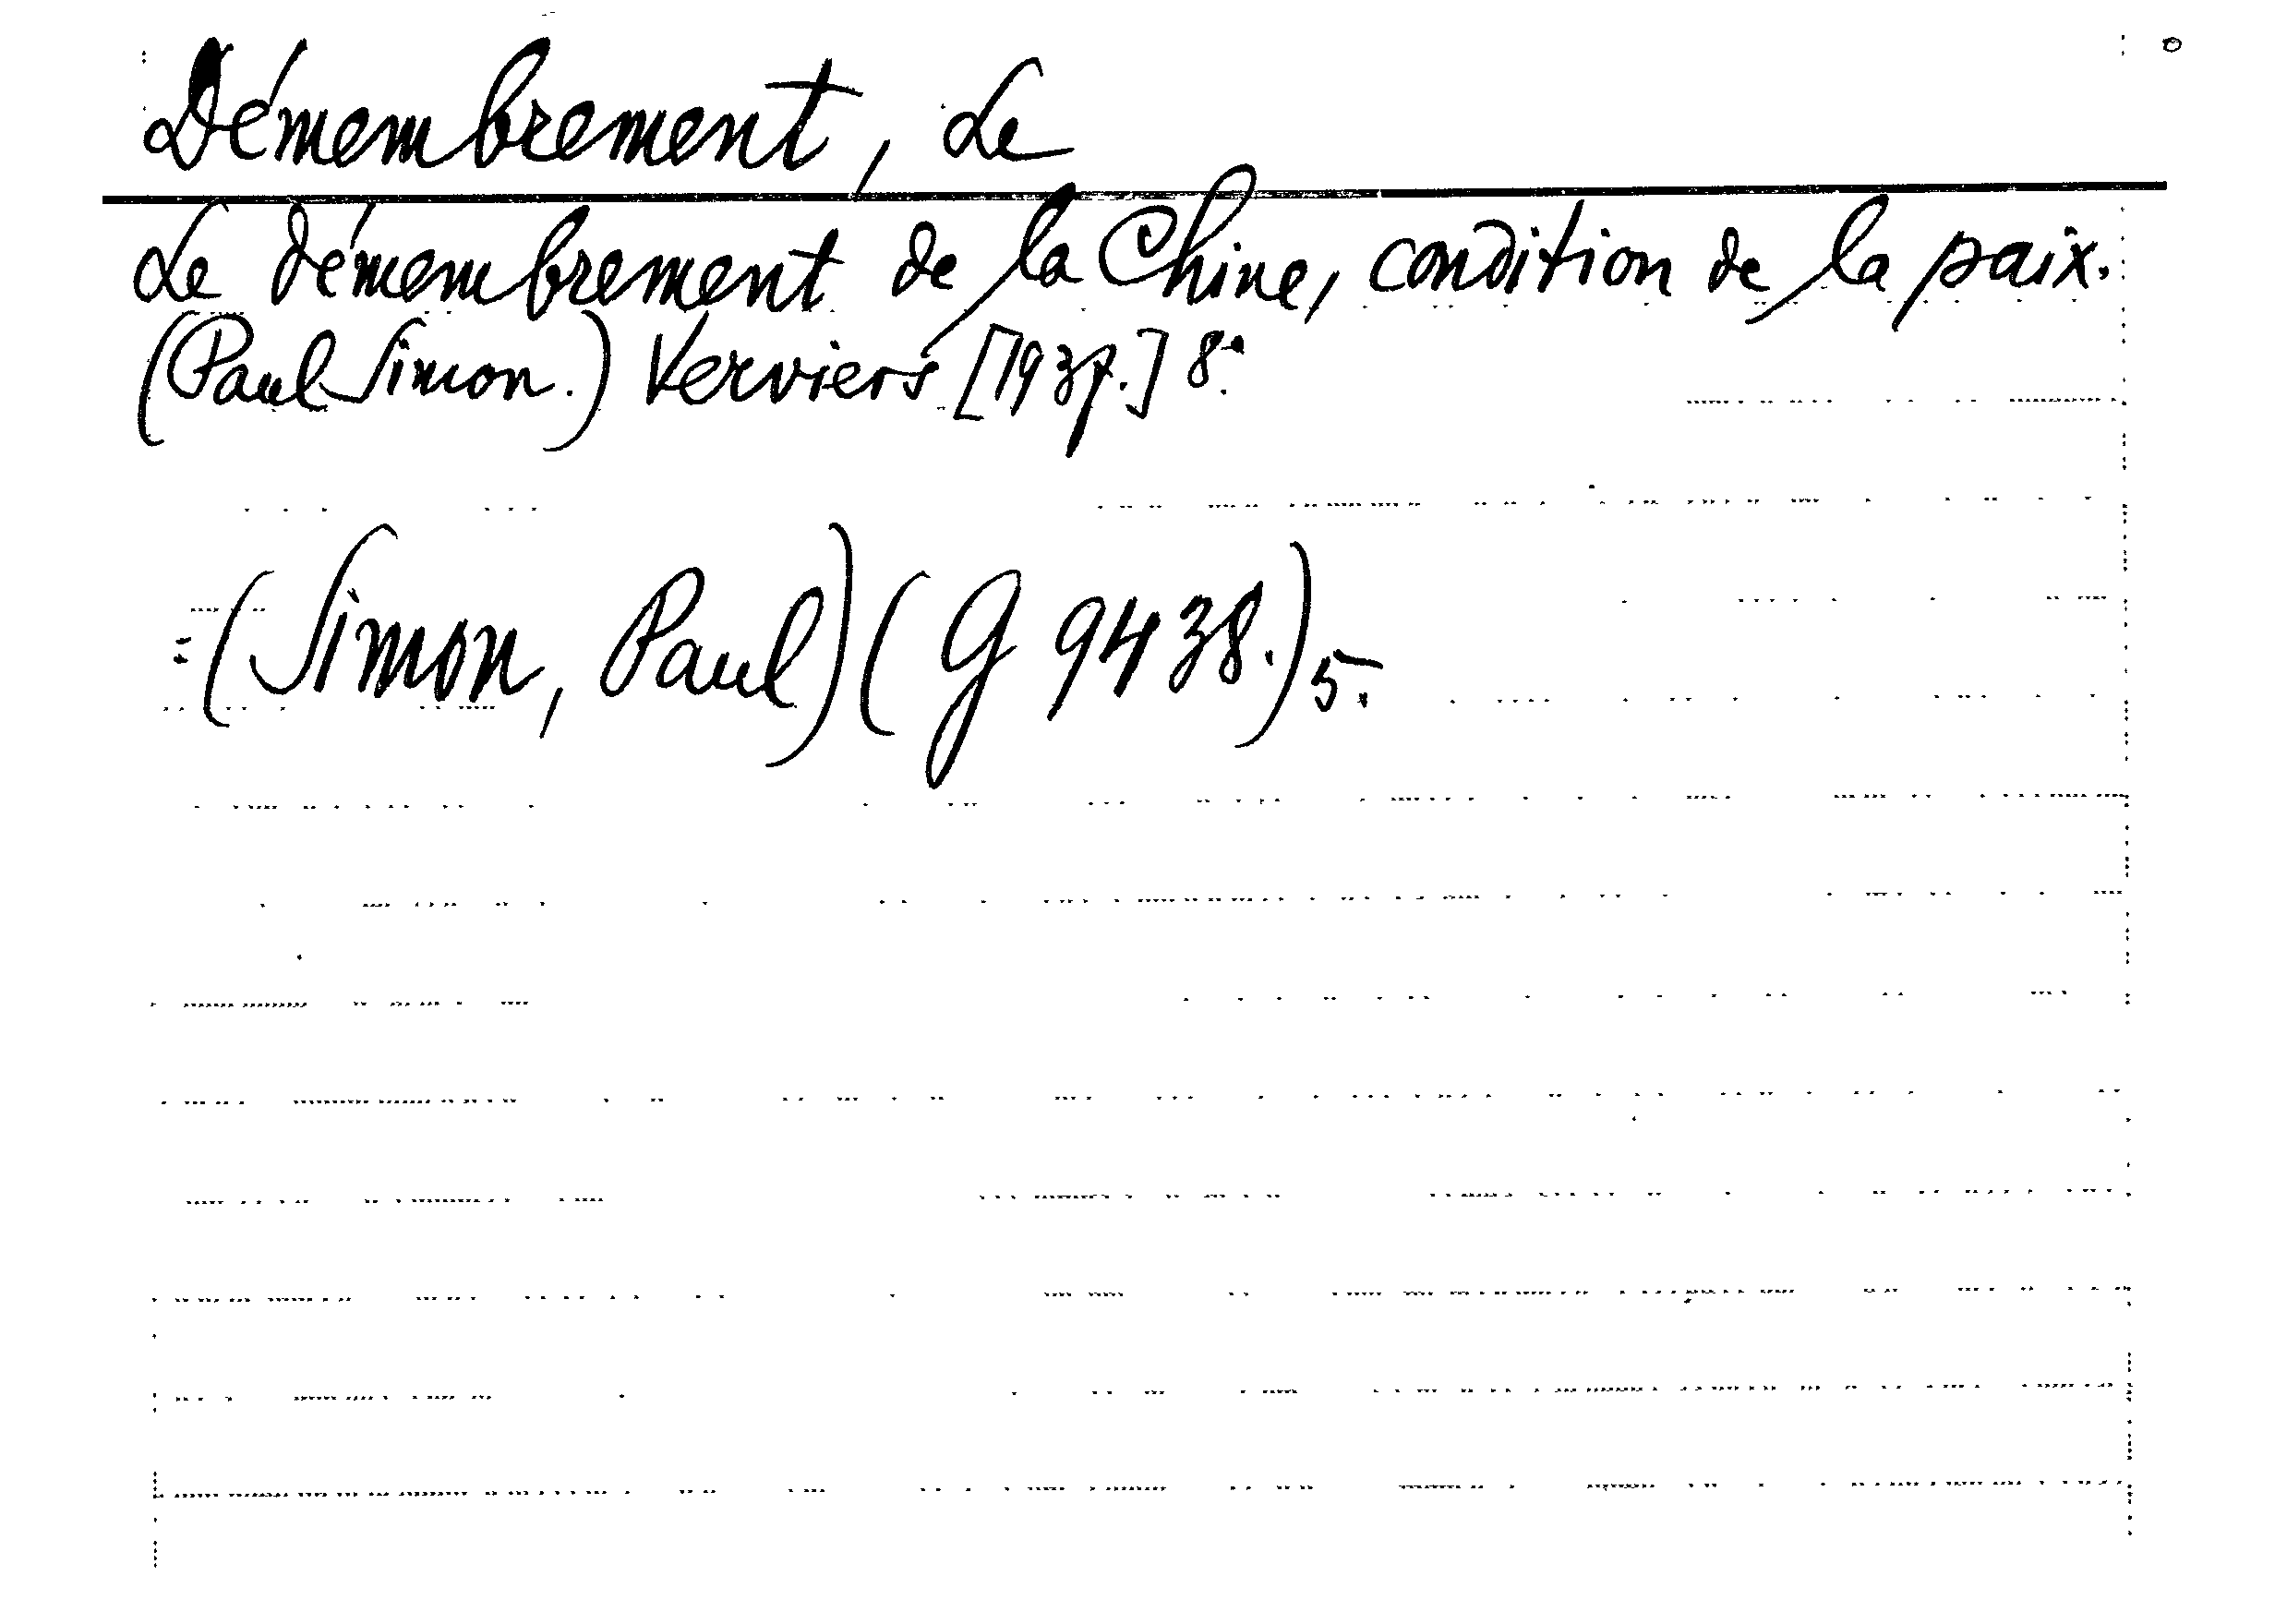 Démembrement, Le
Le démembrement de la Chine, condition de la paix.
(Paul Simon.) Verviers [1937.] 8°.
=(Simon, Paul) (G 9438.) 5.